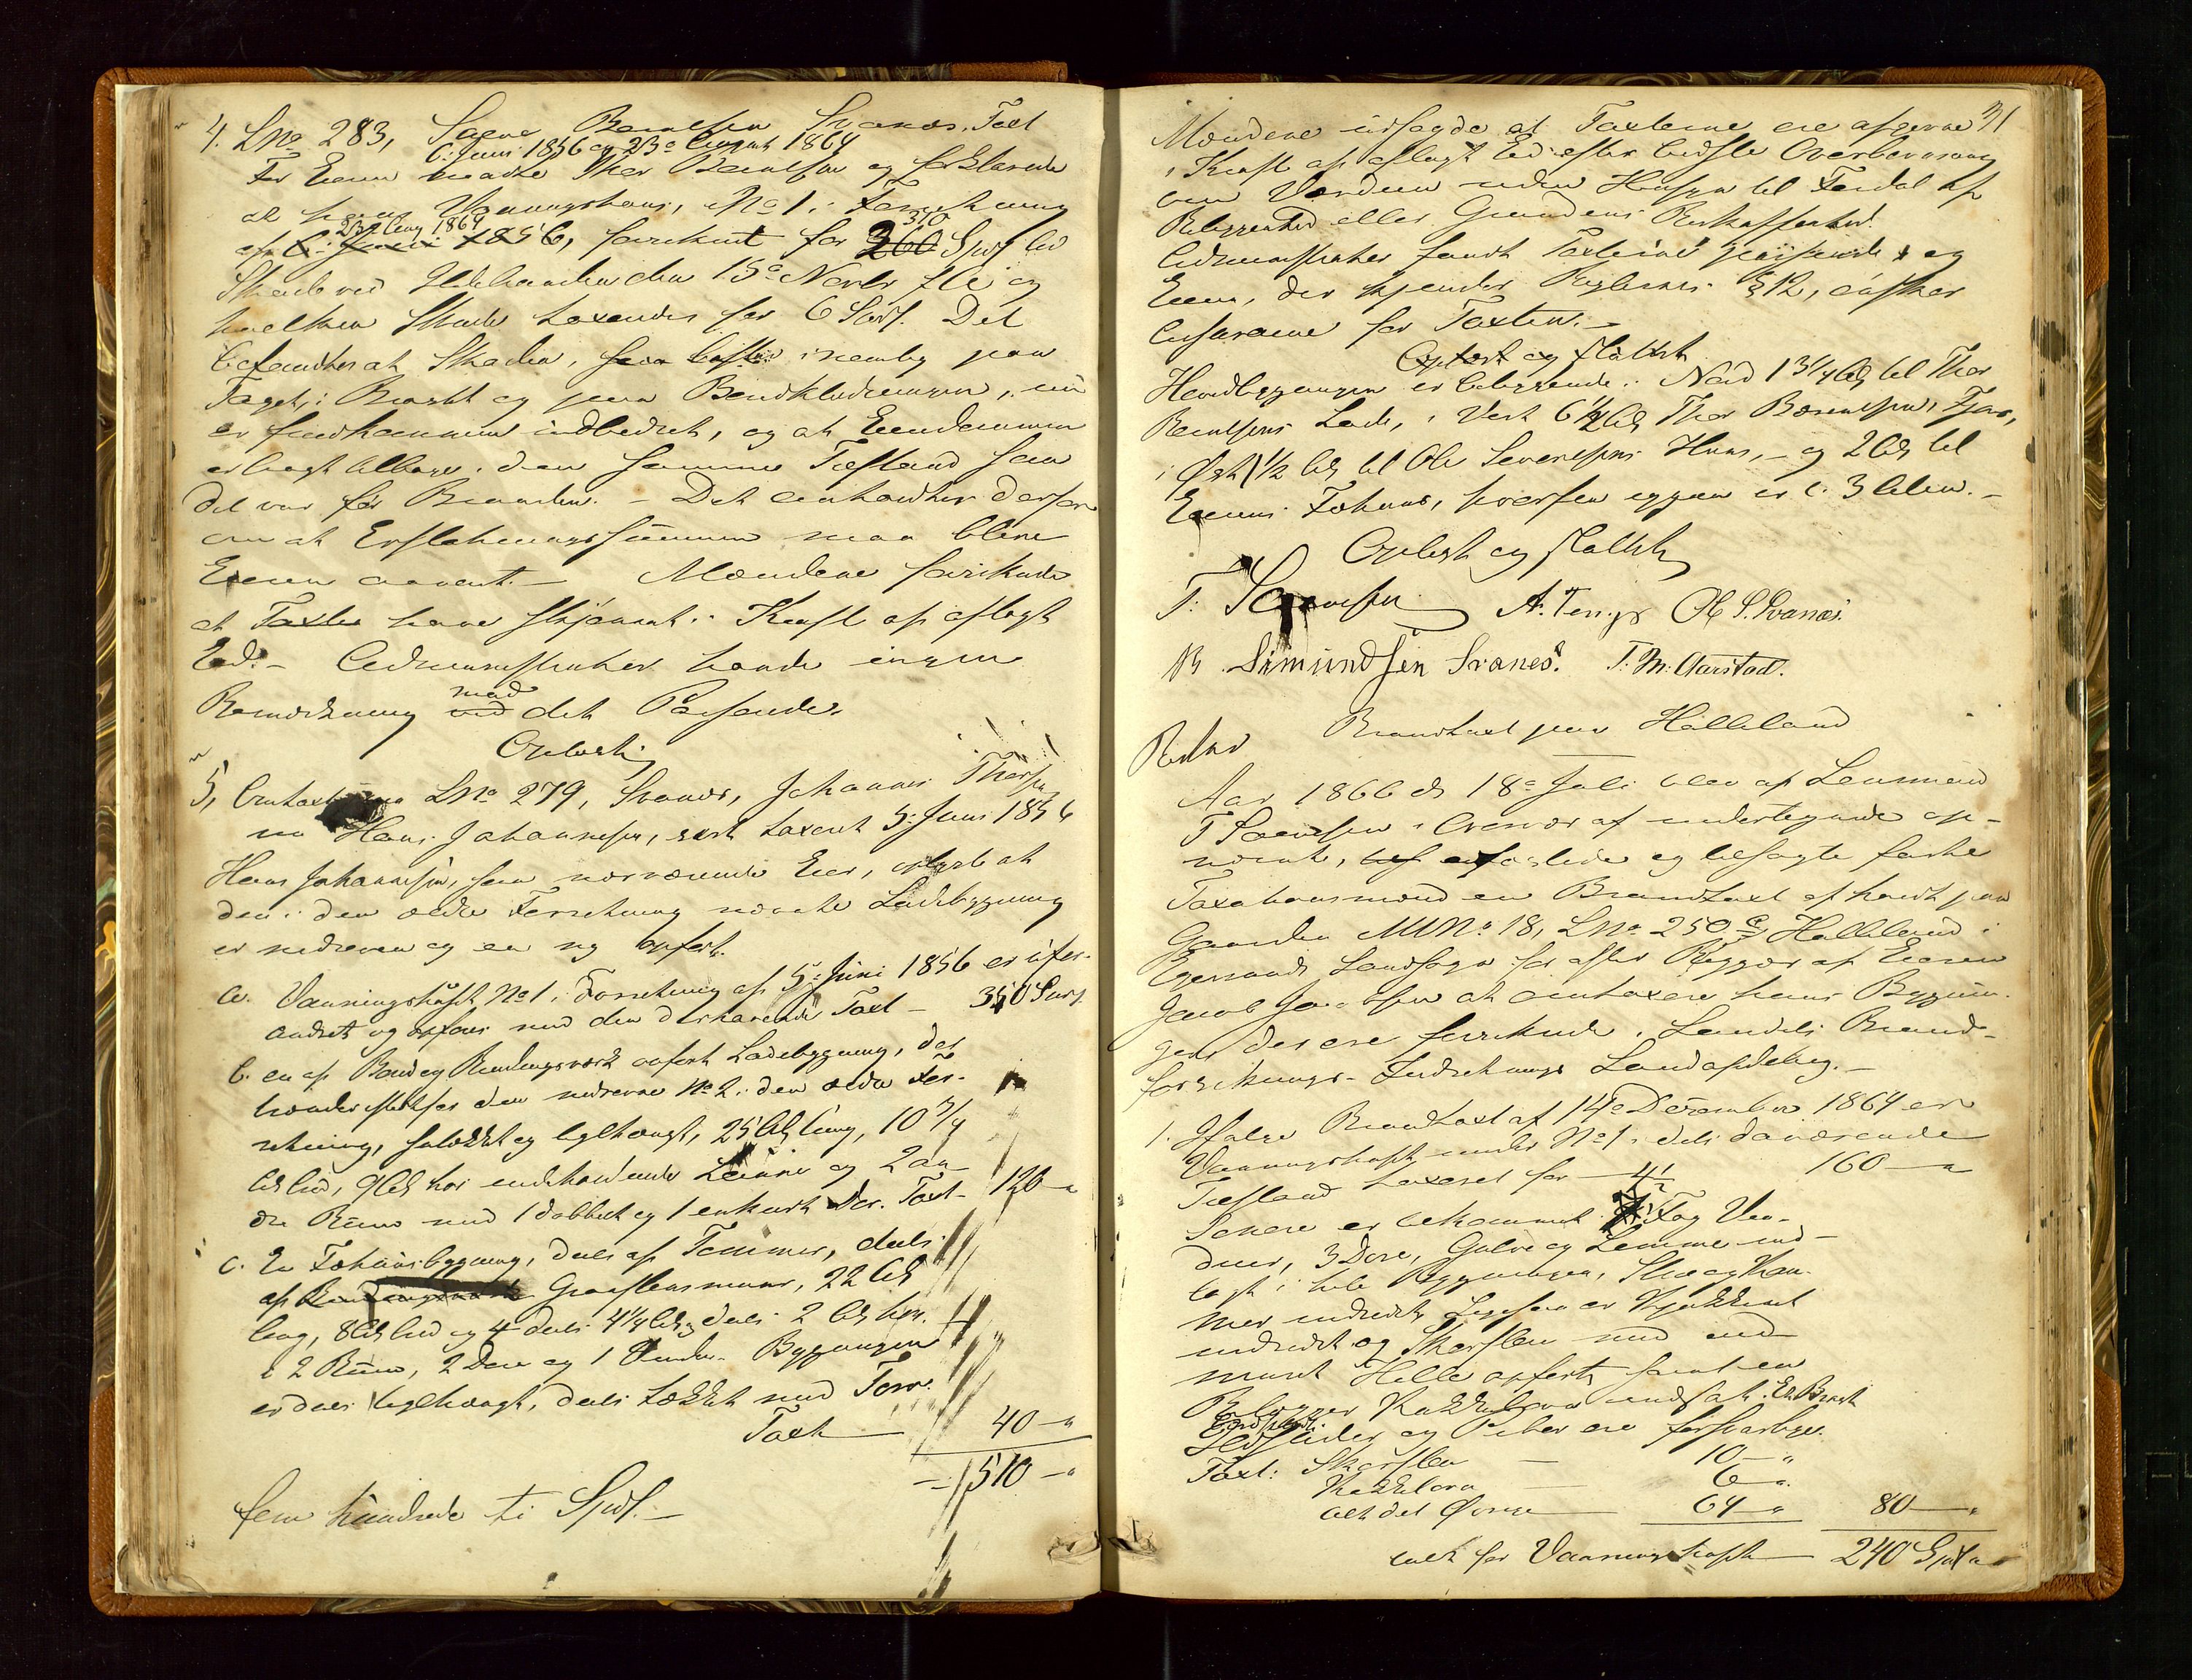 4. LNo 283, Svanæs. Taxt
6. Juni 1856 og 23de August 1864
For Eieren mødte Thor Berntsen og forklarede
at hans Vaaningshuus, No 1 i Forretning
23 Aug 1864 310
af 6. Juni 1856, forsikret for 360 Spd led
Skade ved Ildebranden den 15de Novbr f. A. og
hvilken Skade taxeredes for 6 Spd. Det
befandtes at Skaden, nemlig paa
Taget, i Brøstet og paa Bordklædningen, nu
er fuldkommen udbedret, og at Eiendommen
er bragt tilbage i den samme Tilstand som
det var før Branden. – Det anholdtes derfor
om at Erstatningssummen maa blive
Eieren anvist. – Mændene forsikrede
at Taxten have skjønnet i Kraft af aflagt
Eed. – Lensmanden havde ingen
med
Bemærkning ved det Passerede.
Oplæst.
5, LNo 279, Svanæs, Johannes
nu Hans Johannesen, sidst taxeret 5. Juni 1856
Hans Johannesen, som nærværende Eier, oplyste at
den i den ældre Forretning nævnte Ladebygning
er nedreven og en ny opført.
a. Vaaningshuset No 1 i Forretning af 5. Juni 1856 er ufor-
andret og opføres med den derhavende Taxt – 350 Spd.
b. en af Bord og Bindingsværk opført Ladebygning, der
træder istedetfor den nedrevne No 2 i den ældre For-
retning, og teglhængt, 25 Al lang, 10 3/4
Al bred, 9 Al høi indeholdende og 2 an-
dre Rum med 1 dobbelt og 1 enkelt Dør. Taxt – 120 – "
c. En Fæhuusbygning, deels af Tømmer, deels
af Graastensmuur, 22 Al
lang, 8 Al bred og deels 4 1/4 Al, deels 2 Al høi.
i 2 Rum, 2 Døre og 1 Vindu. Bygningen
er deels teglhængt, deels tækket med Torv.
Taxt 40 – "
510 – "
fem hundrede ti Spd. –
31
Mændene udsagde at Taxterne ere afgivne
i Kraft af aflagt Eed efter bedste Overbeviisning
om Værdien uden Hensyn til Fordel af
Beliggenhed eller Grundens Beskaffenhed.
Lensmanden fandt Taxterne passende og
Eieren, der kjender Reglernes § 12, ønsker
Assurance for Taxten. –
Oplæst og sluttet
Hovedbygningen er beliggende i Nord 13 1/4 Al til Thor
Berntsens Lade, i Vest 6 1/2 Al Thor Berntsens
i Øst 1/2 Al til Ole Severinsens Huus, – og 2 Al til
Eierens Fæhuus, hvorfra igjen er 3 Alen. –
Oplæst og sluttet
T: Sørensen A. Tengs Ole S. Svanæs.
B. Simundsen Svanes. T. M. Aarstad.
Brandtaxt paa Hälleland
Aar 1866 d 18de Juli blev af Lensmand
T Sørensen i Overvær af undertegnede op-
nævnte, og edfæstede faste
Taxationsmænd en Brandtaxt afholdt paa
Gaarden MNo 18, LNo 250 c, Hälleland i
Egersunds Landsogn for efter Begjær af Eieren
Jacob Jacobsen at omtaxere hans Bygnin-
ger der ere forsikrede i Landets Brand-
forsikrings-Indretnings Landafdeling. –
1. Ifølge Brandtaxt af 14de December 1864 er
Vaaningshuset under No 1 i dets daværende
Tilstand taxeret for 160 – "
Senere er bekommet Fag Vin-
duer, 3 Døre, Gulve og Lemme ind-
lagt i hele Bygningen, Stue og Kam-
mer indredet, er Kjøkkenet
indredet og Skorsten med ind-
muret Helle opført, samt en
Bilægger Kakkelovn indsat. En Brask
Ildsteder og Piber ere forsvarlige.
Taxt: Skorsten – 10 – "
Kakkelovn – 6 – "
alt det Øvrige 64 – " 80 – "
ialt for Vaaningshuset 240 Spd "